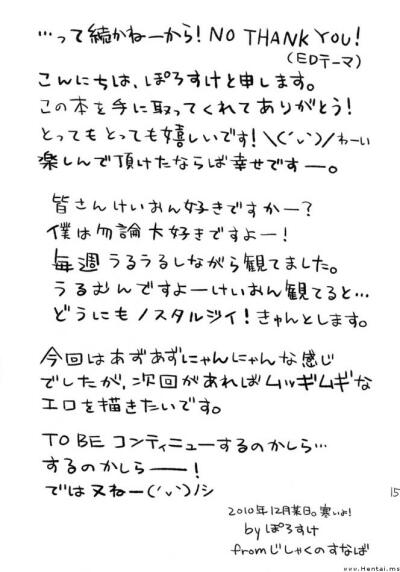 …って続かねーから！NO THANK YOU！
（EDテーマ）
こんにちは、ぽろすけと申します。
この本を手に取ってくれてありがとう！
とってもとっても嬉しいです！＼(´ヽ`)／わーい
楽しんで頂けたならば幸せですー。
皆さんけいおん好きですかー？
僕は勿論大好きですよー！
毎週うるうるしながら観てました。
うるむんですよーけいおん観てると…
どうにもノスタルジイ！きゅんとします。
今回はあずあずにゃんにゃんな感じ
でしたが、次回があればムッギムギな
エロを描きたいです。
TO BE コンティニューするのかしら…
するのかしらー！
では又ねー(´ヽ`)ノシ
15
2010年12月某日。寒いよ！
by ぽろすけ
from じしゃくのすなば
www.Hentai.ms